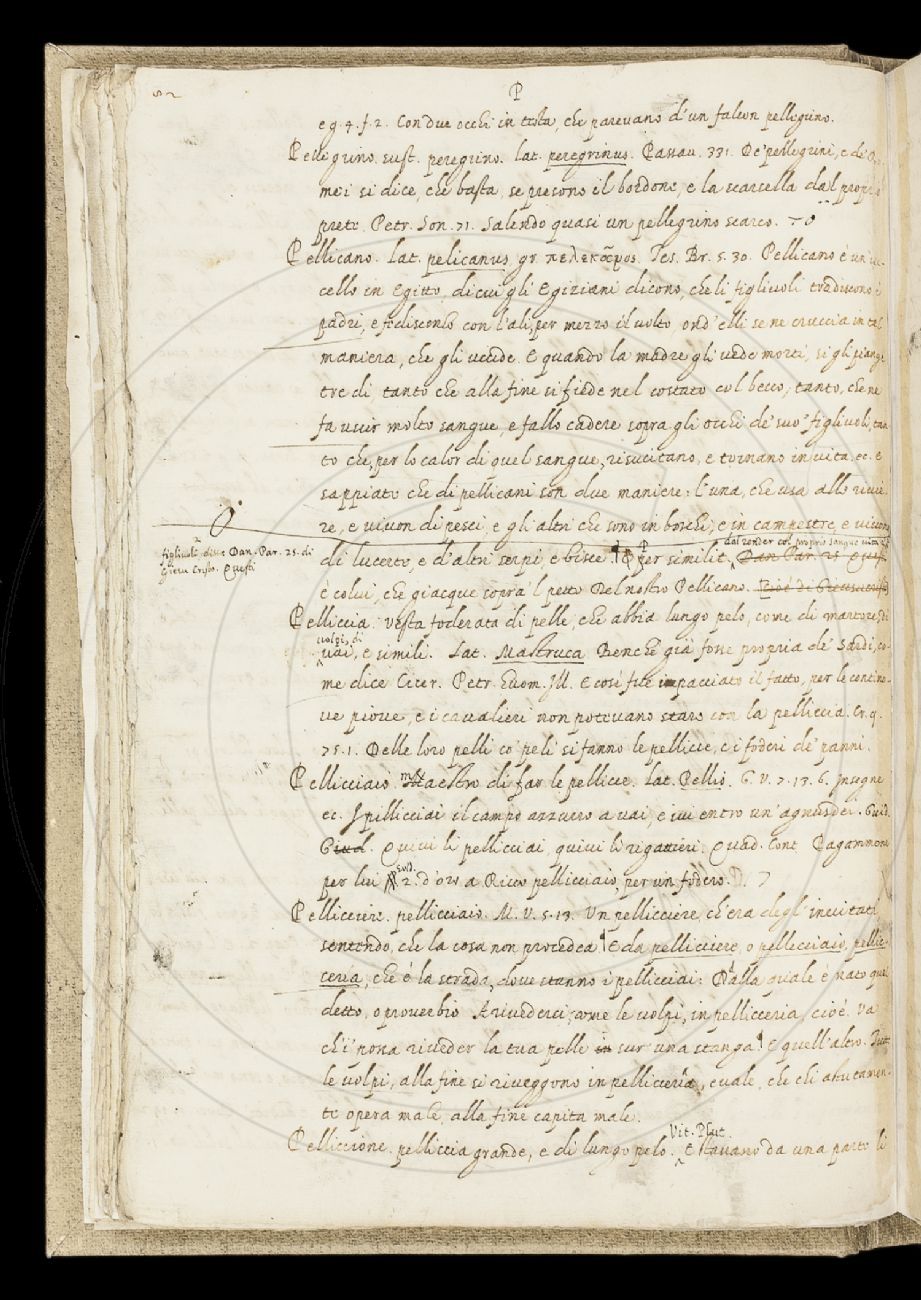 P
eg. 4. f. 2. Con due occhi in testa, che parevano d'un falcon pellegrino.
Pellegrino. sust. peregrino. lat. peregrinus. Passau. 331. De' pellegrini, e de'
mei si dice, che basta, se presono il bordone, e la scarsella dal proprio
preto. Petr. Son. 71. Salendo quasi un pellegrino scarco.
Pellicano. Lat. pelicanus gr. πελεκᾶνος. Tes. Br. 5. 30. Pellicano è un'uc-
cello in Egitto, di cui gli Egiziani dicono, che li figliuoli tradiscono i
padri, e fediscenlo con l'ali, per mezzo il volto, ond' elli se ne cruccia in tal
maniera, che gli uccide. E quando la madre gli vede morti, si gli piange
tre dì tanto che alla fine si fiede nel costato col becco, tanto, che ne
fa uscir molto sangue, e fallo cadere sopra gli occhi de' suo' figliuoli, tan
to che, per lo calor di quel sangue, risucitano, e tornano in vita. ec. E
sappiate che di pellicani son due maniere: l'una, che usa allo rivie-
re, e vivon di pesci, e gli altri che sono in boschi, e in campestre, e vivono
dal render col proprio sangue vita a'
figliuoli. disse Dan. Par. 25. di
Giesu Cristo. Questi
di lucerte, e d'altri serpi, e bisce. E per similit. Dan Par. 25 Questi
è colui, che giacque sopra 'l petto Del nostro Pellicano. Cioè di Giesucristo
Pelliccia. Vesta foderata di pelle, che abbia lungo pelo, come di martore, di
volpi, di
vai, e simili. Lat. Mastruca Benchè già fosse propria de' Sardi, co-
me dice Cicer. Petr. Euom. Ill. E così fue impacciato il fatto, per le contino-
ve piove, e i cavalieri non potevano stare con la pelliccia. Cr. 9.
75. 1. Delle loro pelli co' peli si fanno le pellicce, e i foderi de' panni.
Pellicciaio. Maestro di far le pellicce. Lat. Pellio. G. V. 7. 13. 6. Insegne
ec. I pillicciai il campo azzurro a vai, e ivi entro un' agnusdei. Quad.
Giud. Quivi li pellicciai, quivi li rigattieri. Quad. Cont. Pagammone
per lui 2. d'oro a Ricco pellicciaio, per un fodero.
Pellicciere. pellicciaio. M. V. 5. 13. Un pellicciere, ch'era degl' invitati
sentendo, che la cosa non procedea. E da pellicciere, o pellicciaio, pellic-
ceria, che è la strada, dove stanno i pellicciai: Dalla quale è nato quel
detto, o proverbio Arivederci, come le volpi, in pellicceria, cioè. Va
ch'i' possa riveder la tua pelle in sur una stanga. E quell'altro. Tutte
le volpi, alla fine si riveggono in pellicceria, e vale, che chi astutamen-
te opera male, alla fine capita male.
Vit. Plut.
Pelliccione. pelliccia grande, e di lungo pelo. E stavano da una parte li